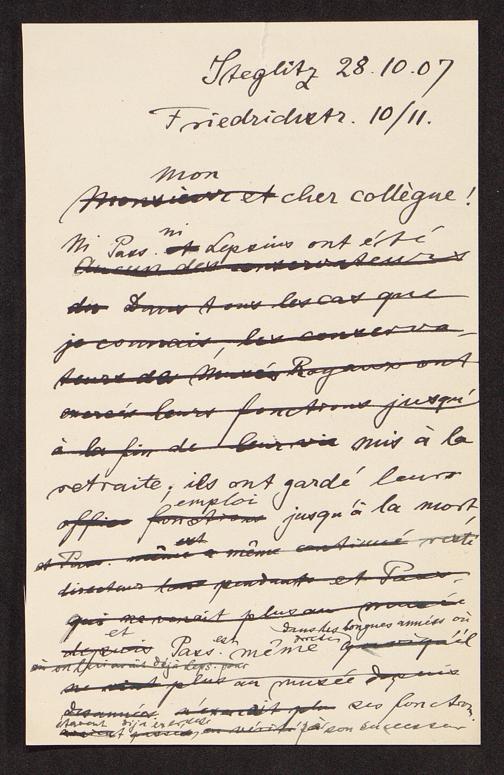 Steglitz 28.10.07
Friedrichstr. 10/11.
mon
Monsieur et cher collègue!
Ni Pass. ni et Lepsius ont été
Aucun des conservateurs
du Dans tous les cas que
je connais, les conserva-
teurs des Musées Royaux ont
exercés leurs fonctions jusqu'
à la fin de leur vie mis à la
retraite; ils ont gardé leurs
emploi
office fonctions jusqu'à la mort
est
et Pass. même a même continué resté
directeur pendant et Pass.
qui ne venait plus au musée
et est dans les longues années où
depuis Pass. même quoiqu'il
où on l'avait déjà
ne vint plus au musée depuis
des années n'exerçait plus ses fonction
étaient déjà
en vérité par son successeur